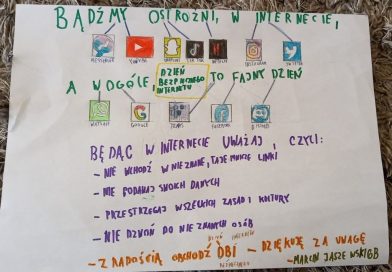 BĄDŹMY OSTROŻNI, W INTERNECIE,
MESSENGER YOUTUBE SNAPCHAT TIK TOK NETFLIX INSTAGRAM TWITTER
A WOGÓLE, DZIEŃ BEZPIECZNEGO INTERNETU TO FAJNY DZIEŃ
WHATSAPP GOOGLE TEAMS FACEBOOK DISCORD
BĘDĄC W INTERNECIE UWAŻAJ, CZYLI:
- NIE WCHODŹ W NIEZNANE, TAJEMNICZE LINKI
- NIE PODAWAJ SWOICH DANYCH
- PRZESTRZEGAJ WSZELKICH ZASAD I KULTURY
- NIE DZWOŃ DO NIEZNANYCH OSÓB
- Z RADOŚCIĄ OBCHODŹ DBI - DZIĘKUJĘ ZA UWAGĘ
DZIEŃ INTERNETU
BEZPIECZNEGO
- MARCIN JASZEWSKI 6B